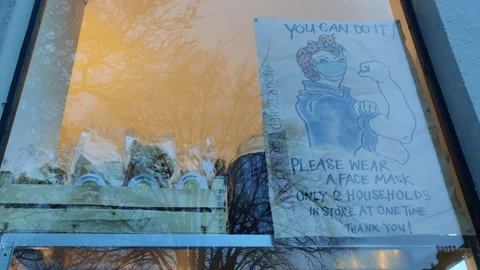 YOU CAN DO IT!
PLEASE WEAR
A FACE MASK
ONLY 2 HOUSEHOLDS
IN STORE AT ONE TIME
THANK YOU!